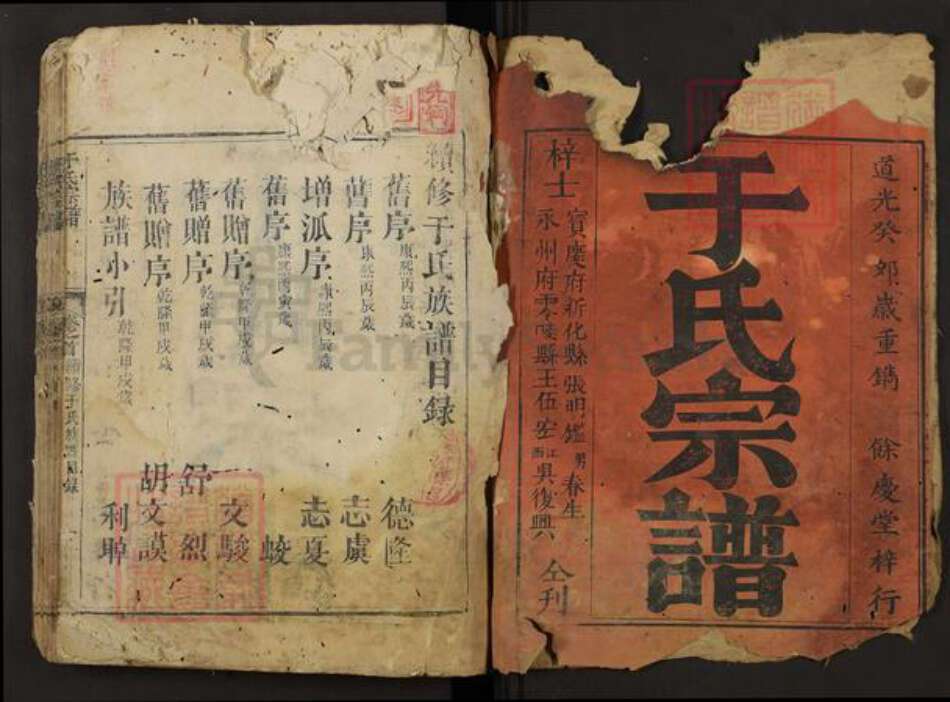 道光癸卯歲重鐫 餘慶堂梓行
于氏宗譜
梓士 寶慶府新化縣張明鑑 男春生
永州府零陵縣王伍安 江西吳復興
仝刊
續修于氏族譜目錄
舊序 康熙丙辰歲 德隆
舊序 康熙丙辰歲 志虞
增派序 康熙丙辰歲 志夏
舊序 康熙丙寅歲 峻
舊贈序 乾隆甲戌歲 文駿
舊贈序 乾隆甲戌歲 舒烈
舊贈序 乾隆甲戌歲 胡文謨
族譜小引 乾隆甲戌歲 利埠
于氏宗譜
卷之首 續修于氏族譜目錄